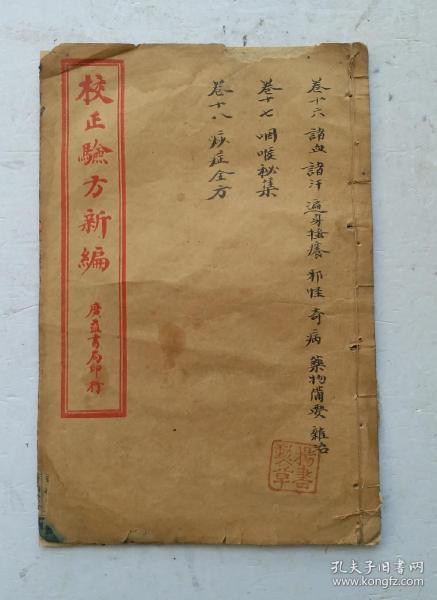 卷十六 諸血 諸汗 遍身搔癢 邪怪 奇病 藥物備要 雜治
卷十七 咽喉秘集
卷十八 痧症全方
校正驗方新編
廣益書局印行
孔夫子旧书网
www.kongfz.com